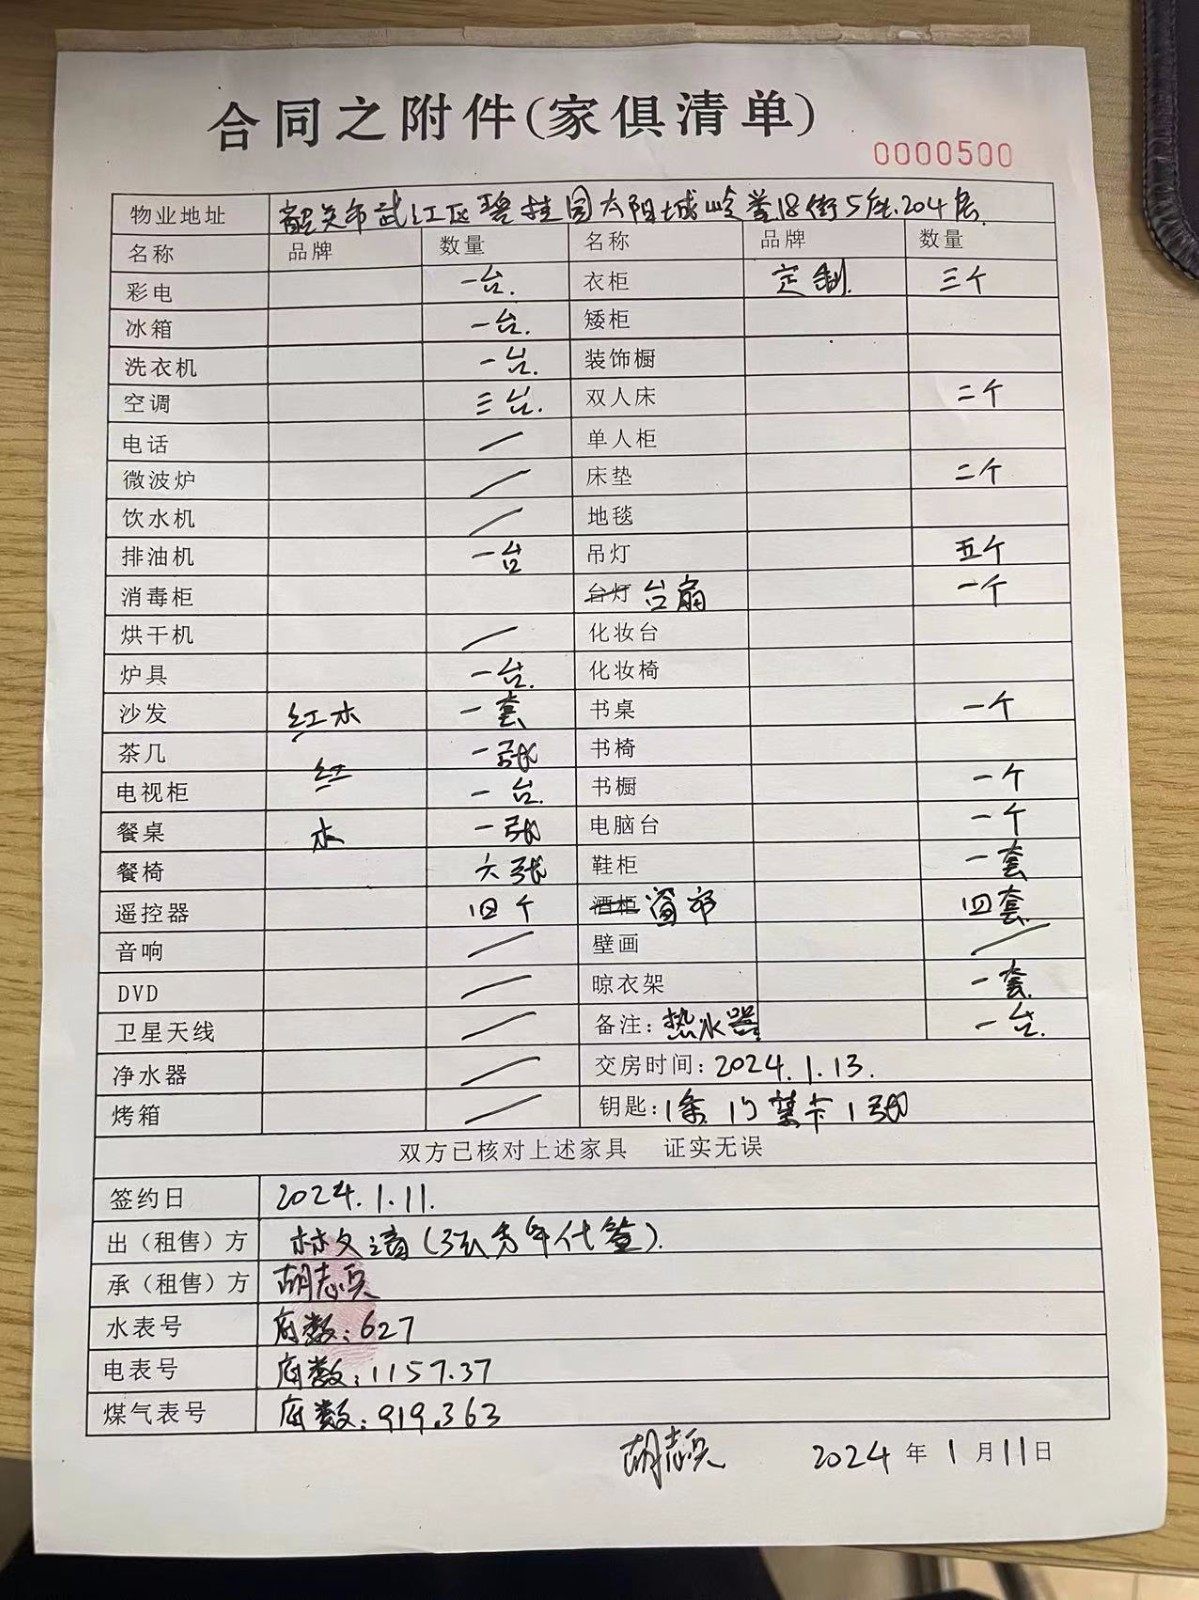 合同之附件(家俱清单)
0000500
物业地址 韶关市武江区碧桂园太阳城岭誉18街5座204房
名称 品牌 数量 名称 品牌 数量
彩电 一台. 衣柜 定制. 三个
冰箱 一台. 矮柜
洗衣机 一台. 装饰橱
空调 三台. 双人床 二个
电话 / 单人柜
微波炉 / 床垫 二个
饮水机 / 地毯
排油机 一台 吊灯 五个
消毒柜 台灯 台扇 一个
烘干机 / 化妆台
炉具 一台. 化妆椅
沙发 红木 一套 书桌 一个
茶几 红 一张 书椅
电视柜 一台. 书橱 一个
餐桌 木 一张 电脑台 一个
餐椅 六张 鞋柜 一套
遥控器 四个 酒柜 窗帘 四套
音响 / 壁画 /
DVD / 晾衣架 一套
卫星天线 / 备注: 热水器 一台.
净水器 / 交房时间: 2024.1.13.
烤箱 / 钥匙: 1条 门禁卡1张
双方已核对上述家具 证实无误
签约日 2024.1.11.
出（租售）方 林文清(张秀年代签).
承（租售）方 胡志兵
水表号 底数: 627
电表号 底数: 1157.37
煤气表号 底数: 919.363
胡志兵 2024 年 1 月 11 日